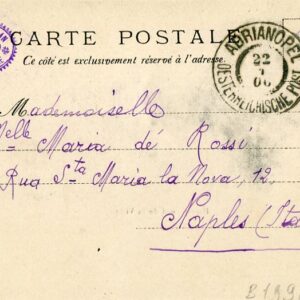 CARTE POSTALE
Ce côté est exclusivement réservé à l'adresse.
ADRIANOPEL
22
00
OESTERREICHISCHE
Mademoiselle
Melle Maria dé Rossi
Rua Sta Maria la Nova, 12,
Naples (Ita